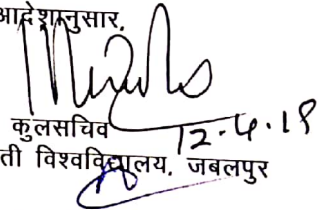 आदेशानुसार,
कुलसचिव
12.4.18
ती विश्वविद्यालय, जबलपुर